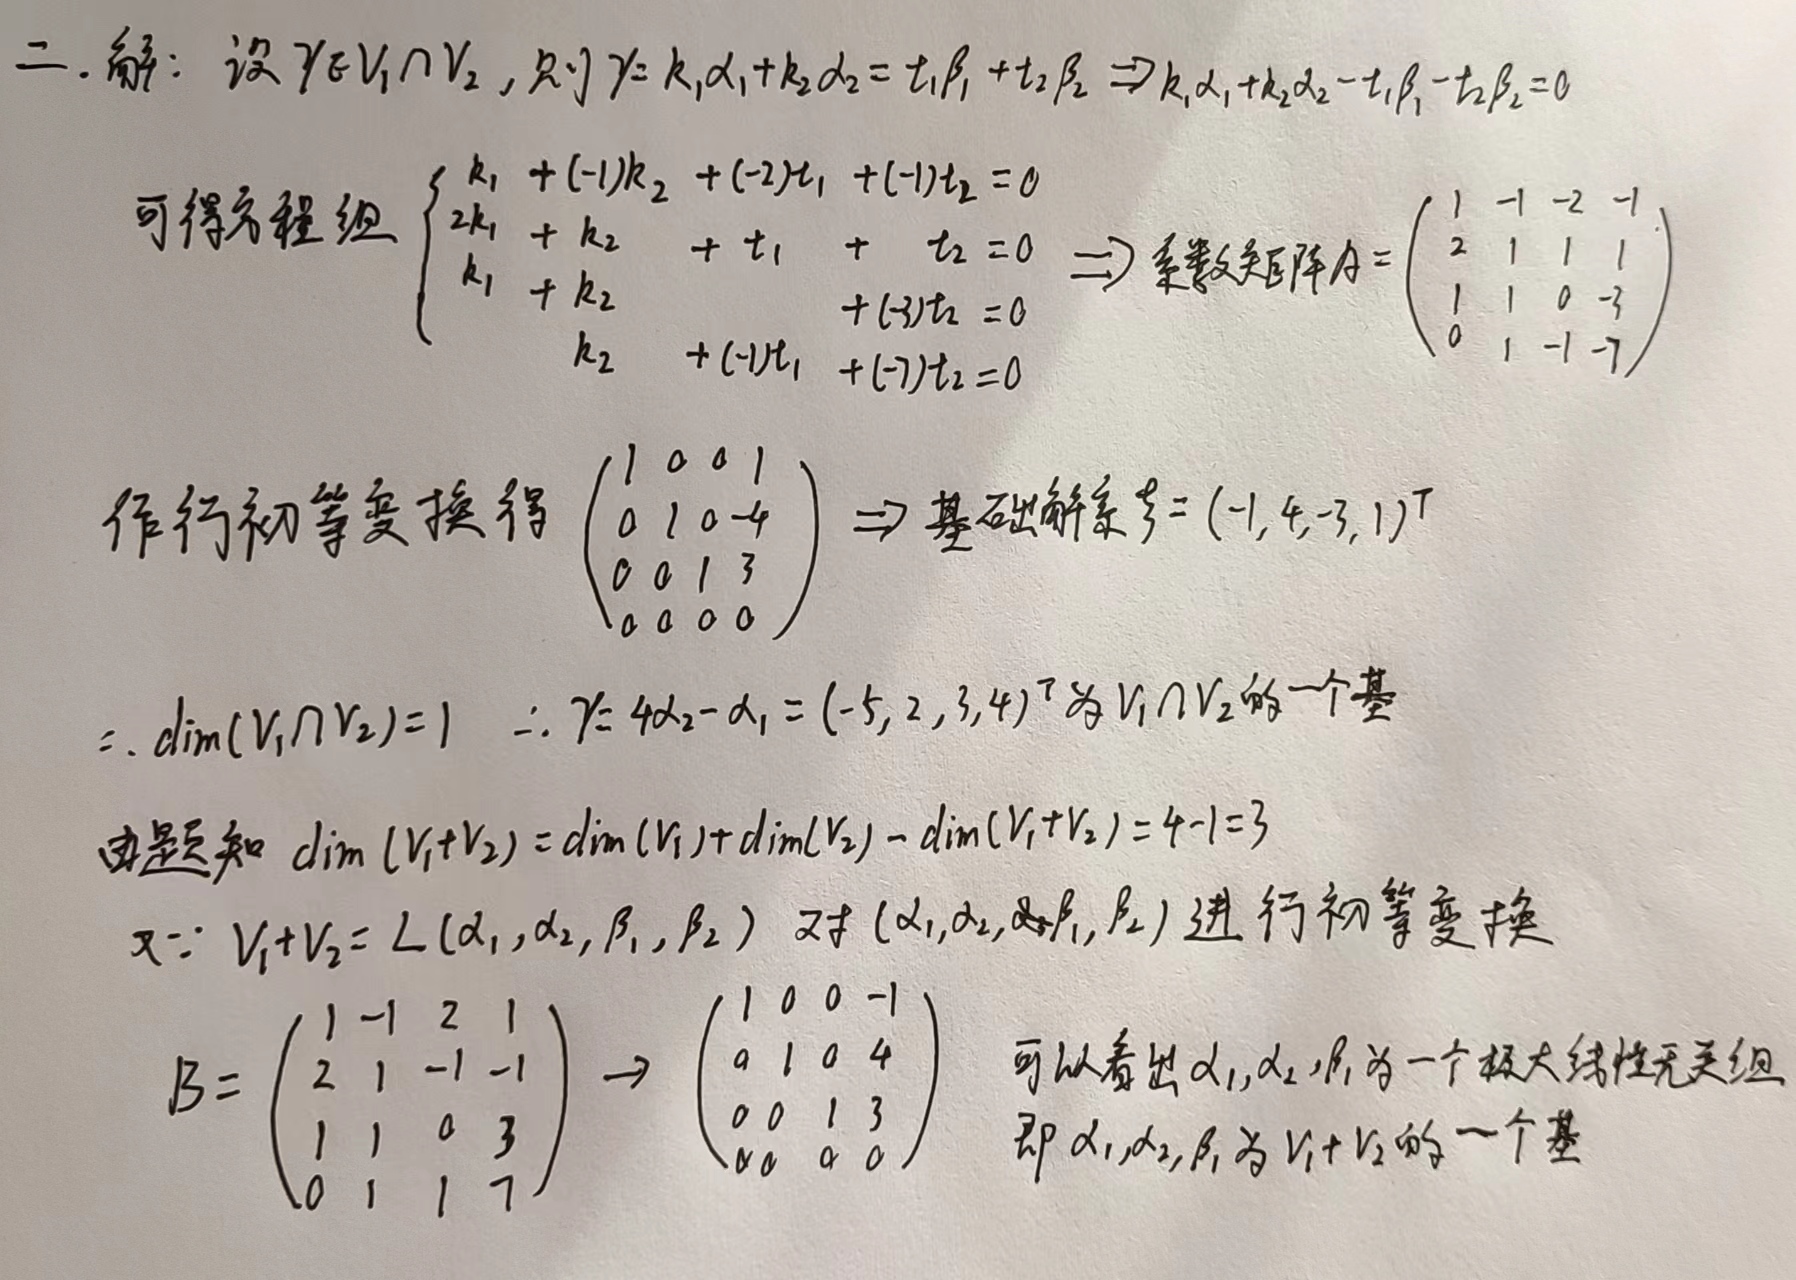 二.解: 设 γ∈V₁∩V₂, 则 γ=k₁α₁+k₂α₂=t₁β₁+t₂β₂ ⇒ k₁α₁+k₂α₂-t₁β₁-t₂β₂=0
可得方程组 { k₁ +(-1)k₂ +(-2)t₁ +(-1)t₂ =0
2k₁ + k₂ + t₁ + t₂ =0
k₁ + k₂ +(-3)t₂ =0
k₂ +(-1)t₁ +(-7)t₂=0
⇒ 系数矩阵A=
( 1 -1 -2 -1
2 1 1 1
1 1 0 -3
0 1 -1 -7 )
作行初等变换得
( 1 0 0 1
0 1 0 -4
0 0 1 3
0 0 0 0 )
⇒ 基础解系ξ=(-1,4,-3,1)ᵀ
∴ dim(V₁∩V₂)=1 ∴ γ=4α₂-α₁=(-5,2,3,4)ᵀ为V₁∩V₂的一个基
由题知 dim(V₁+V₂)=dim(V₁)+dim(V₂)-dim(V₁+V₂)=4-1=3
又∵ V₁+V₂=L(α₁,α₂,β₁,β₂) 对(α₁,α₂,β₁,β₂)进行初等变换
B=
( 1 -1 2 1
2 1 -1 -1
1 1 0 3
0 1 1 7 )
→
( 1 0 0 -1
0 1 0 4
0 0 1 3
0 0 0 0 )
可以看出α₁,α₂,β₁为一个极大线性无关组
即α₁,α₂,β₁为V₁+V₂的一个基